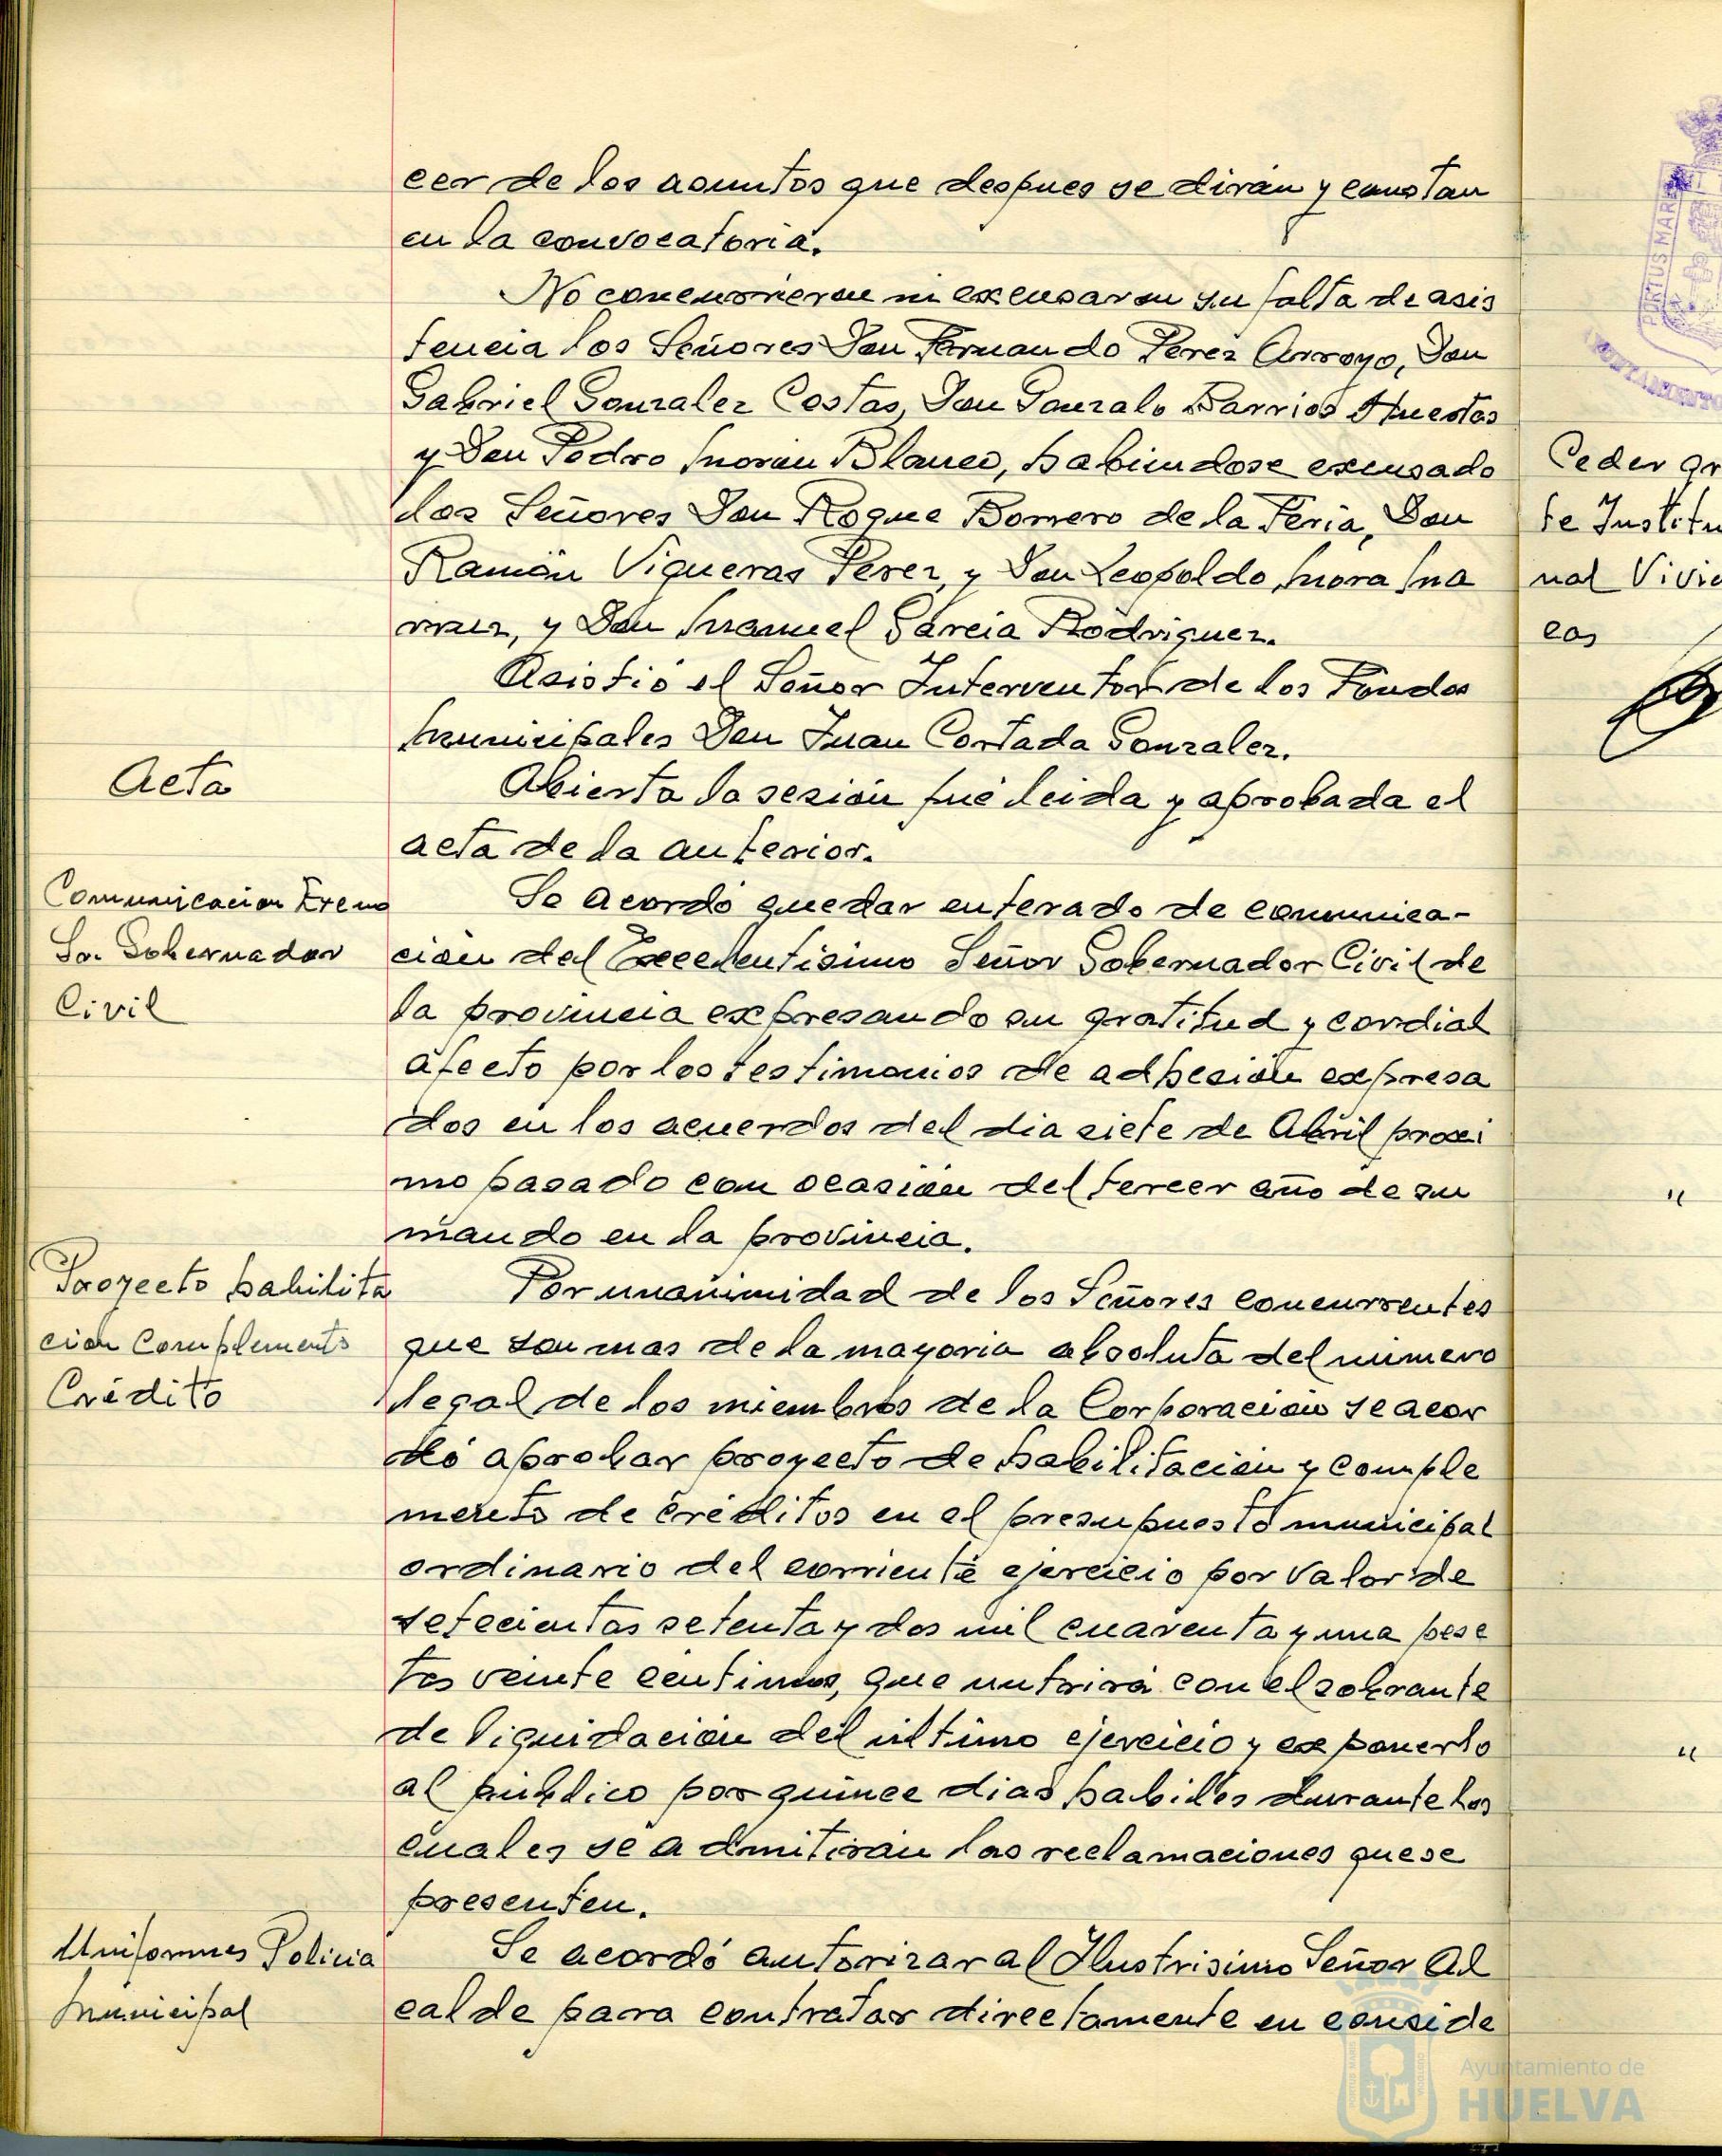 cer de los asuntos que despues se dirán y constan
en la convocatoria.
No concurrieron ni excusaron su falta de asis
tencia los Señores Don Fernando Perez Arroyo, Don
Gabriel Gonzalez Costas, Don Gonzalo Barrios Huestas
y Don Pedro Moron Blanco, habiendose excusado
los Señores Don Roque Borrero de la Feria, Don
Ramón Vigueras Perez, y Don Leopoldo Mora Ma
rruz, y Don Manuel Garcia Rodriguez.
Asistió el Señor Interventor de los Fondos
Municipales Don Juan Cortada Gonzalez.
Acta
Abierta la sesión fué leida y aprobada el
acta de la anterior.
Comunicacion Excmo
Sr. Gobernador
Civil
Se acordó quedar enterado de comunica-
ción del Excelentisimo Señor Gobernador Civil de
la provincia expresando su gratitud y cordial
afecto por los testimonios de adhesión expresa
dos en los acuerdos del dia siete de Abril proxi
mo pasado con ocasión del tercer año de su
mando en la provincia.
Proyecto habilita
cion Complemento
Crédito
Por unanimidad de los Señores concurrentes
que son mas de la mayoria absoluta del numero
legal de los miembros de la Corporación se acor
dó aprobar proyecto de habilitación y comple
mento de créditos en el presupuesto municipal
ordinario del corriente ejercicio por valor de
setecientas setenta y dos mil cuarenta y una pese
tas veinte centimos, que nutrirá con el sobrante
de liquidación del último ejercicio y exponerlo
al público por quince dias habiles durante los
cuales se admitirán las reclamaciones que se
presenten.
Uniformes Policia
Municipal
Se acordó autorizar al Ilustrisimo Señor Al
calde para contratar directamente en conside
PORTUS MARIS
AYUNTAMIENTO
Ceder gr
te Institu
nal Vivie
cas
"
"
Ayuntamiento de
HUELVA